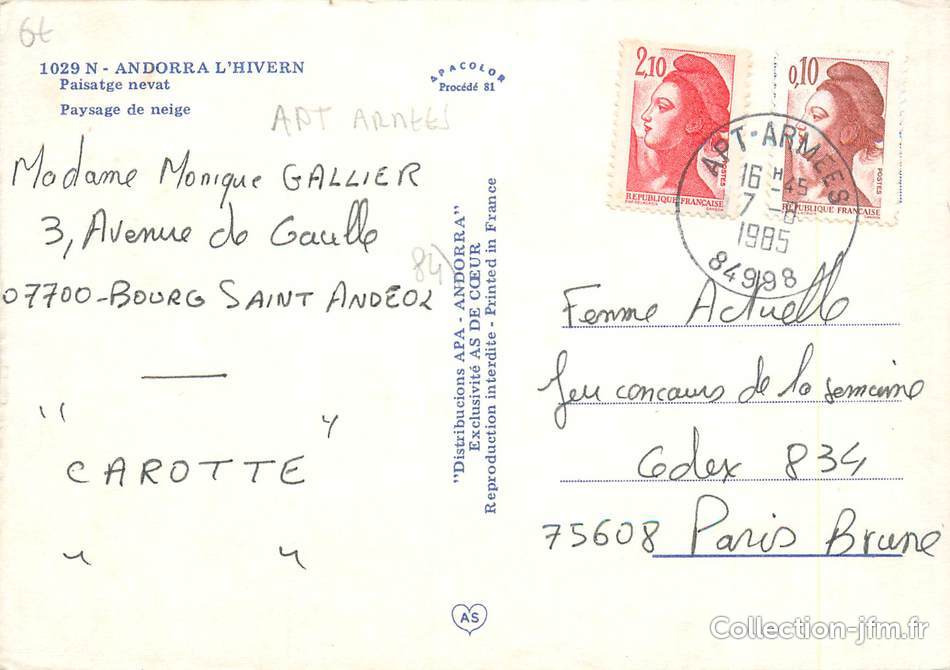 6€
1029 N - ANDORRA L'HIVERN
Paisatge nevat
Paysage de neige
APACOLOR
Procédé 81
APT ARMEES
Madame Monique GALLIER
3, Avenue de Gaulle
07700-BOURG SAINT ANDEOL
84)
" "
CAROTTE
" "
"Distribucions APA - ANDORRA"
Exclusivité AS DE CŒUR
Reproduction interdite - Printed in France
AS
2,10
POSTES
REPUBLIQUE FRANÇAISE
0,10
POSTES
REPUBLIQUE FRANÇAISE
APT-ARMEES
16 H 45
7 - 8
1985
84998
Femme Actuelle
Jeu concours de la semaine
Cedex 834
75608 Paris Brune
Collection-jfm.fr